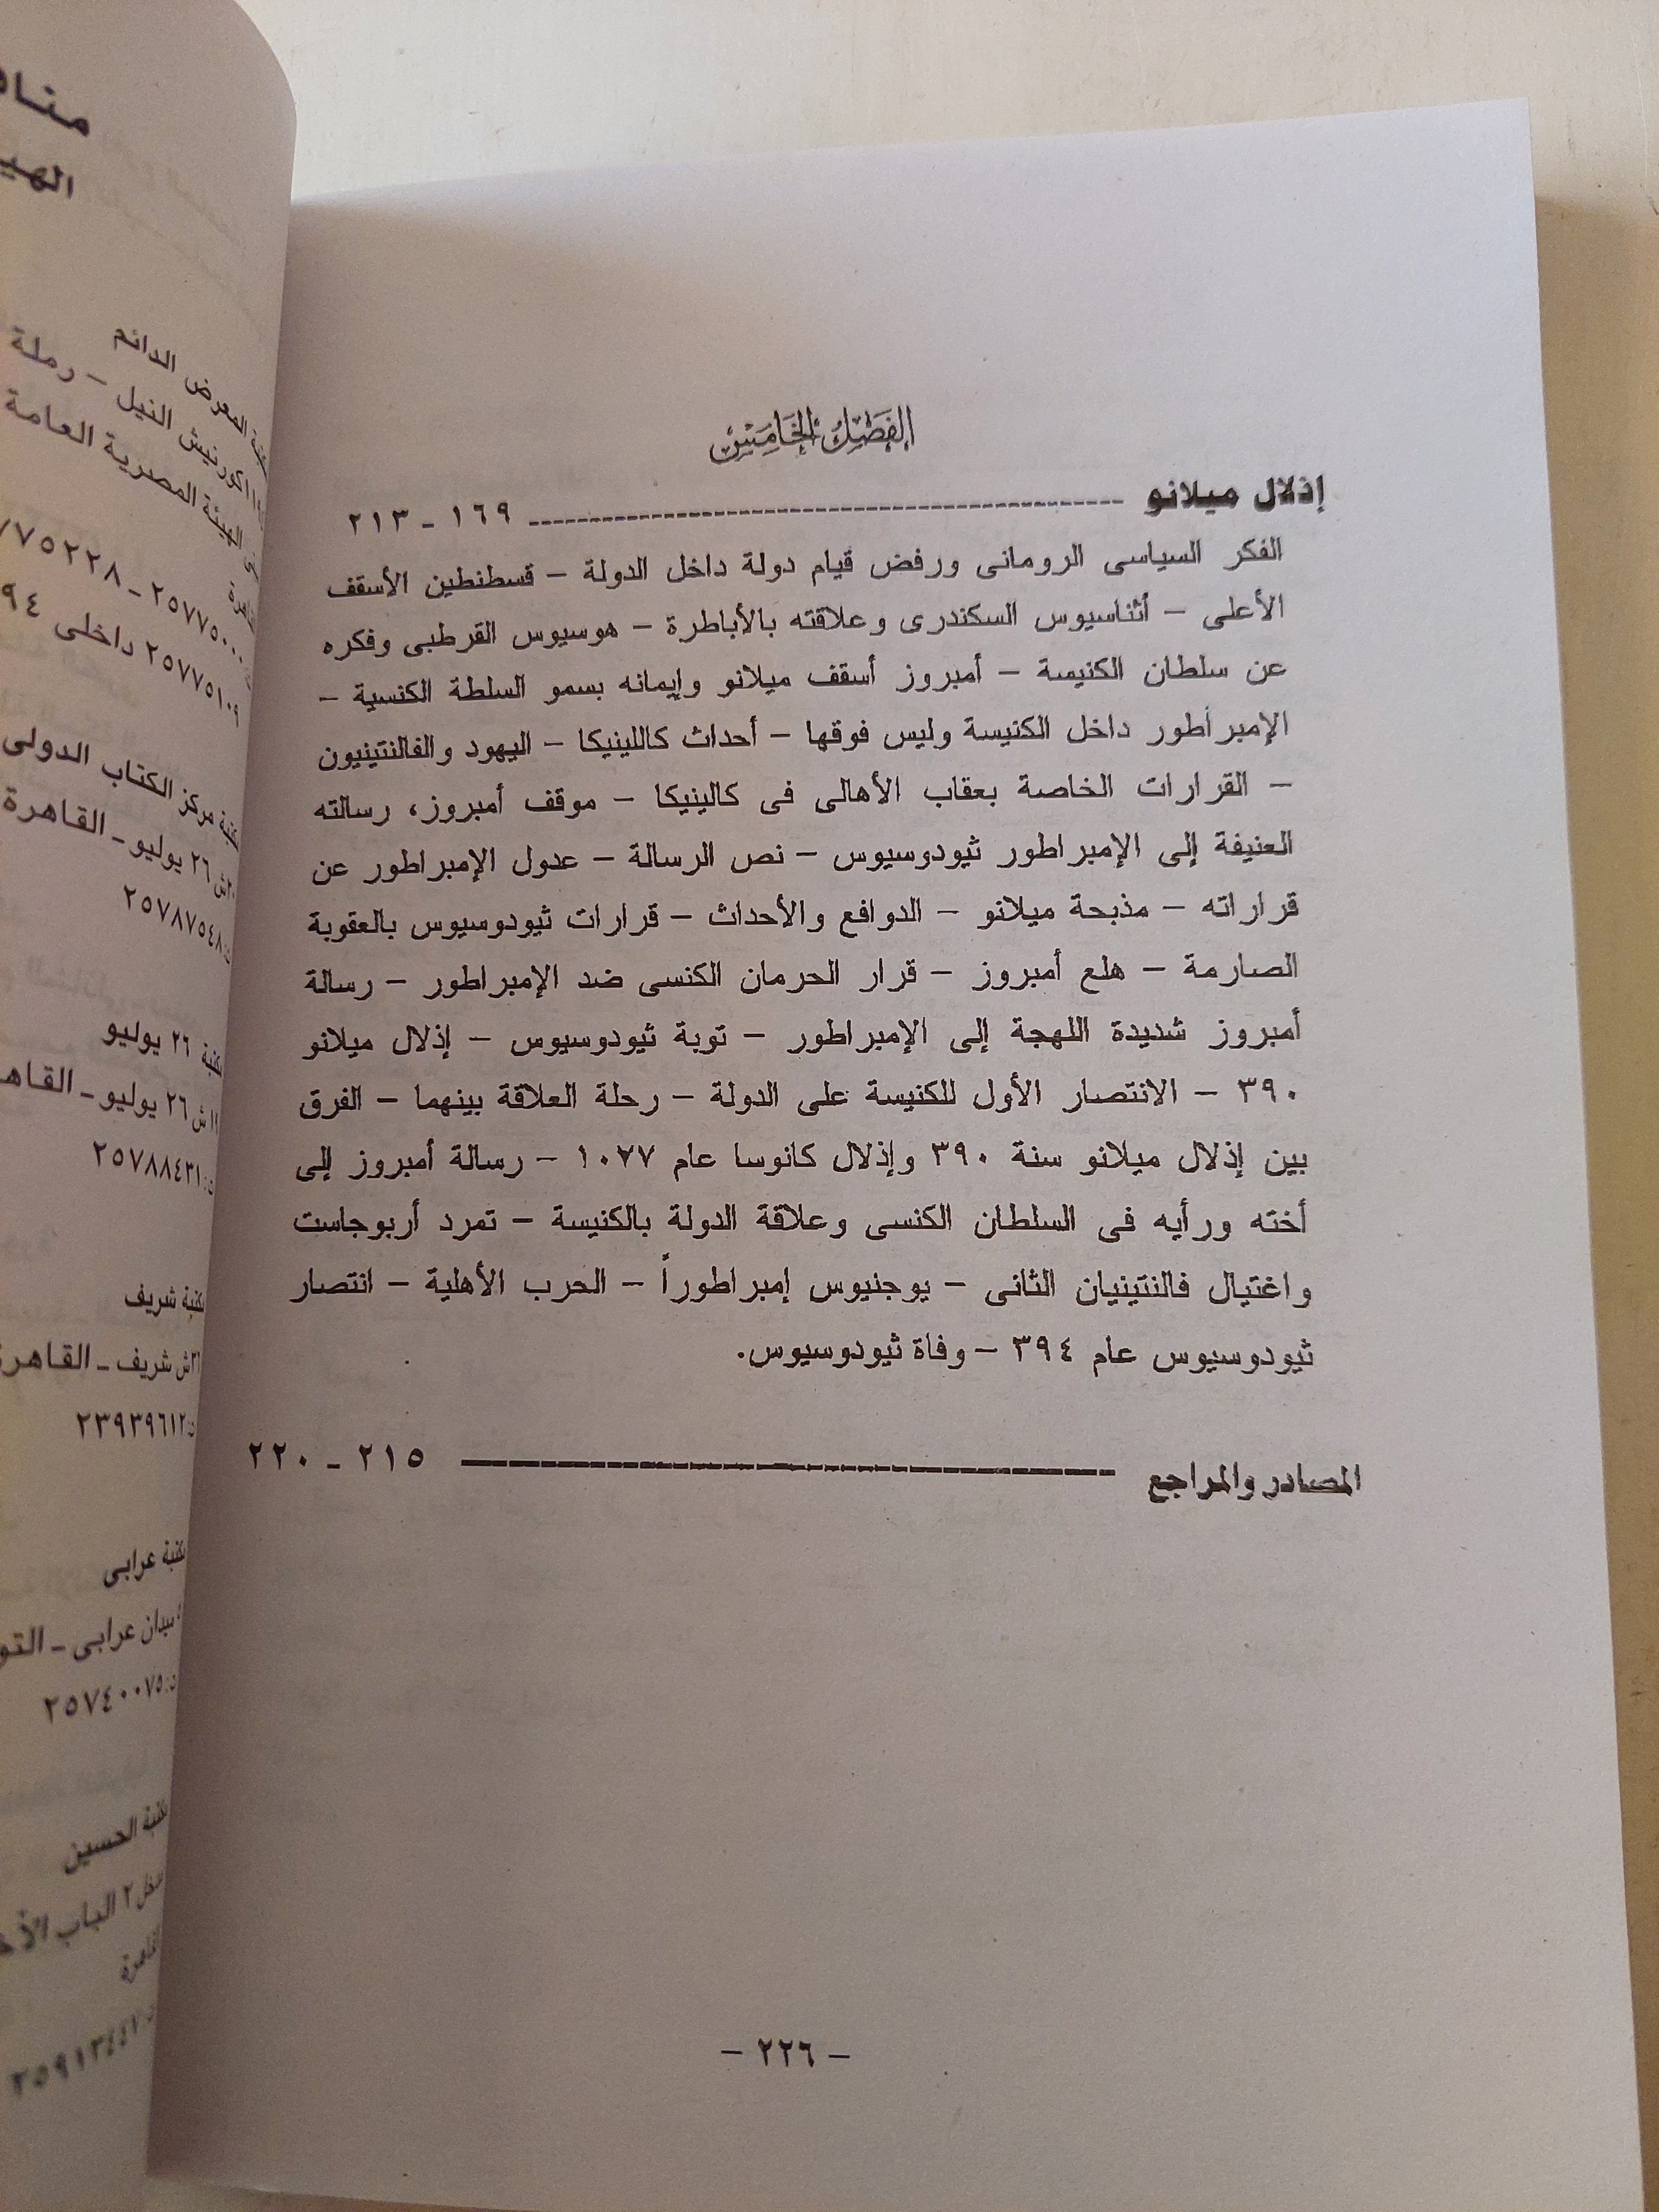 الفصل الخامس
إذلال ميلانو ١٦٩ - ٢١٣
الفكر السياسى الرومانى ورفض قيام دولة داخل الدولة – قسطنطين الأسقف
الأعلى – أثناسيوس السكندرى وعلاقته بالأباطرة – هوسيوس القرطبى وفكره
عن سلطان الكنيسة – أمبروز أسقف ميلانو وإيمانه بسمو السلطة الكنسية –
الإمبراطور داخل الكنيسة وليس فوقها – أحداث كاللينيكا – اليهود والفالنتينيون
– القرارات الخاصة بعقاب الأهالى فى كالينيكا – موقف أمبروز، رسالته
العنيفة إلى الإمبراطور ثيودوسيوس – نص الرسالة – عدول الإمبراطور عن
قراراته – مذبحة ميلانو – الدوافع والأحداث – قرارات ثيودوسيوس بالعقوبة
الصارمة – هلع أمبروز – قرار الحرمان الكنسى ضد الإمبراطور – رسالة
أمبروز شديدة اللهجة إلى الإمبراطور – توبة ثيودوسيوس – إذلال ميلانو
٣٩٠ – الانتصار الأول للكنيسة على الدولة – رحلة العلاقة بينهما – الفرق
بين إذلال ميلانو سنة ٣٩٠ وإذلال كانوسا عام ١٠٧٧ – رسالة أمبروز إلى
أخته ورأيه فى السلطان الكنسى وعلاقة الدولة بالكنيسة – تمرد أربوجاست
واغتيال فالنتينيان الثانى – يوجنيوس إمبراطوراً – الحرب الأهلية – انتصار
ثيودوسيوس عام ٣٩٤ – وفاة ثيودوسيوس.
المصادر والمراجع ٢١٥ - ٢٢٠
– ٢٢٦ –
المعرض الدائم
كورنيش النيل – رملة
الهيئة المصرية العامة
داخلى
مركز الكتاب الدولى
٢٦ يوليو – القاهرة
٢٥٧٨٧٥٤٨
٢٦ يوليو
٢٦ يوليو –
٢٥٧٨٨٤٣١
شريف
شريف –
٢٣٩٣٩٦١٢
عرابى
عرابى –
٢٥٧٤٠٠٧٥
الحسين
الباب